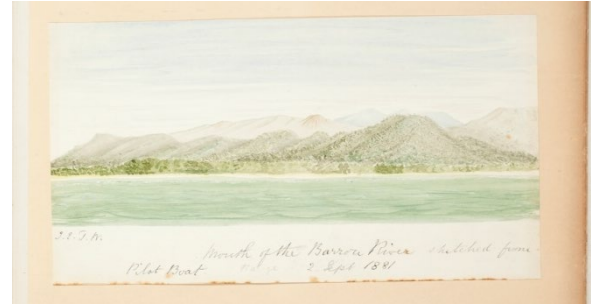 Mouth of the Barron River sketched from
Pilot Boat 2 Sept 1891